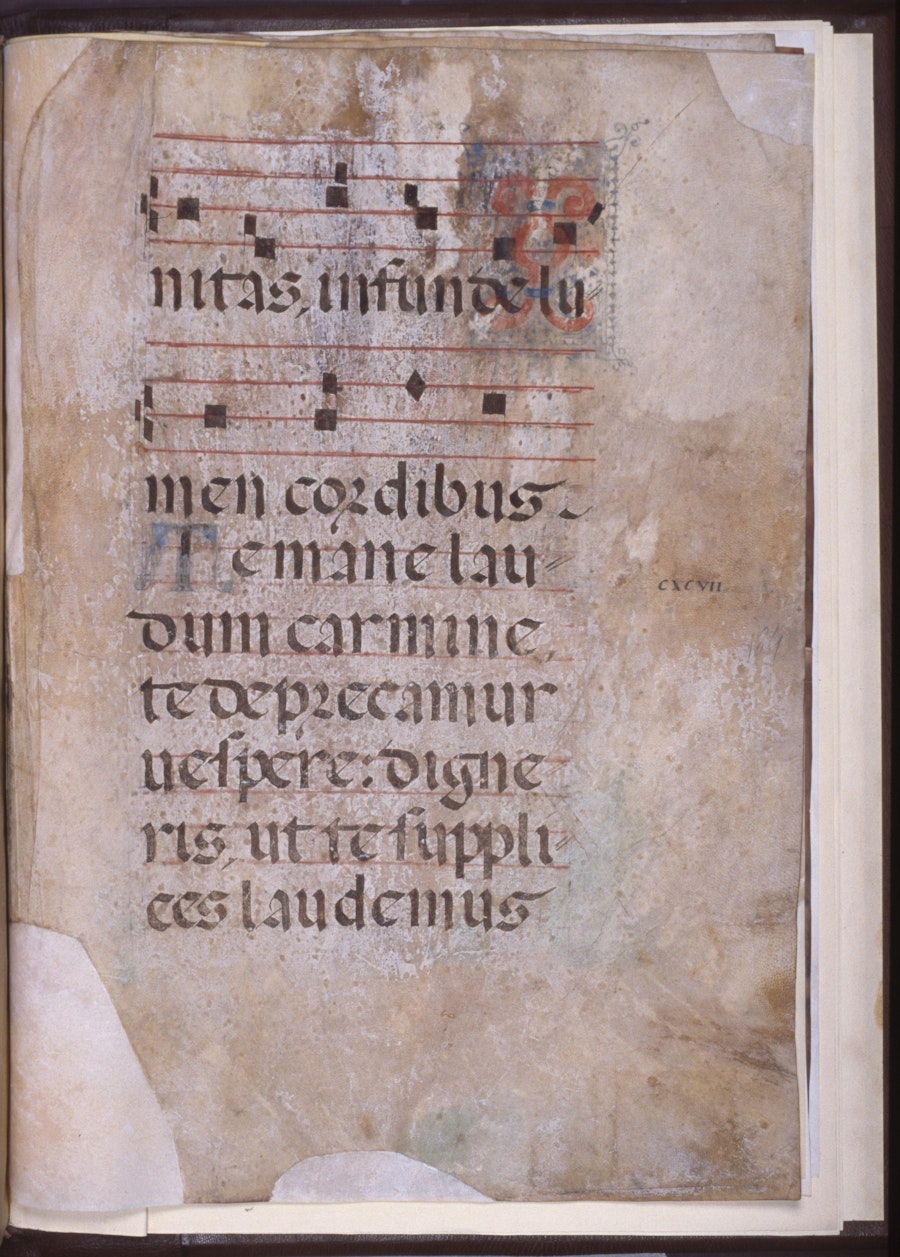 nitas, infunde lu⸗
men cordibus
Te mane lau⸗
dum carmine,
te deprecamur
uespere: digne
CXCVII
ris, ut te suppli⸗
ces laudemus